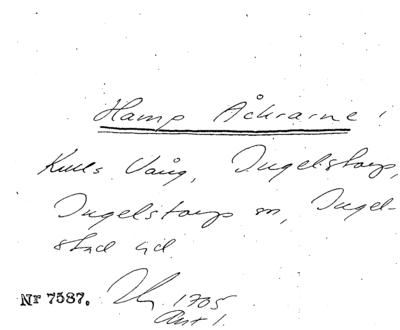 Hamp Åkrarne!
Kulls Vång, Ingelstorp,
Ingelstorps sn, Ingel-
stad hd.
Nr 7587. 1705
Akt 1.